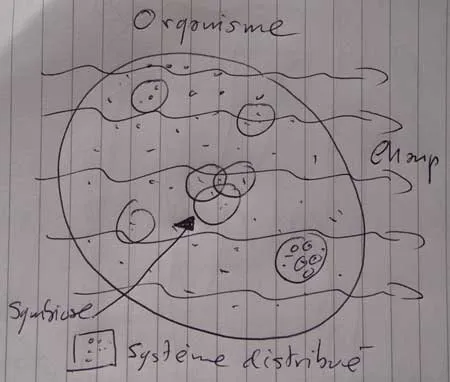 Organisme
Champ
Symbiose
Système distribué